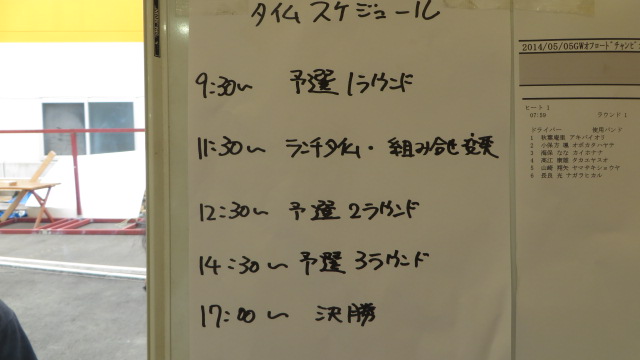 タイムスケジュール
9:30〜 予選 1ラウンド
11:30〜 ランチタイム・組み合せ変更
12:30〜 予選 2ラウンド
14:30〜 予選 3ラウンド
17:00〜 決勝
2014/05/05GWオフロードチャンピ
ヒート 1
07:59 ラウンド 1
ドライバー 使用バンド
1 アキバイオリ
2 オボカタハヤテ
3 カイホナナ
4 タカエヤスオ
5 ヤマザキショウヤ
6 長良 光 ナガラヒカル